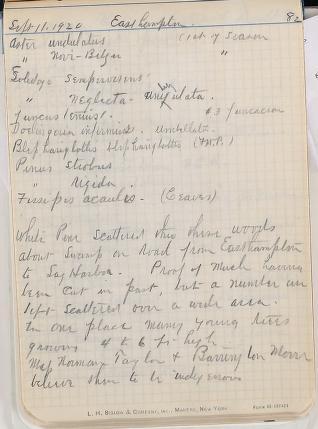 Sept 11, 1920 Easthampton. 82
Aster undulatus (1st of season
" Novi-Belgii "
Solidago Sempervirens
" Neglecta - Uniligulata.
Juncus tenuis. #3 Juncacean
Doellingeria infirmus. umbellata.
Blephariglottis blephariglottis (N.P.)
Pinus strobus
" Rigida.
Fissipes acaulis. (Leaves)
White Pine scattered thro these woods
about swamp on road from Easthampton
to Sag Harbor. Proof of much having
been cut in past, but a number are
left scattered over a wide area.
In one place many young trees
growing 4 to 6 ft high.
Norman Taylor & Barrington Moore
believe them to be indigenous
L. H. BIGLOW & COMPANY, INC., MAKERS, NEW YORK